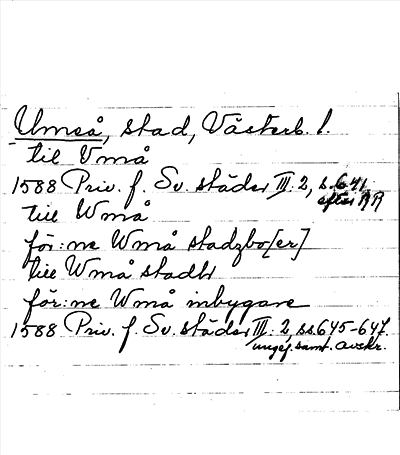 Umeå, stad, Västerb. l.
til Vmå
1588 Priv. f. Sv. städer III: 2, s. 641
efter RR
till Wmå
för:ne Wmå stadzbo[er]
till Wmå stadh
för:ne Wmå inbygare
1588 Priv. f. Sv. städer III: 2, ss. 645-647.
ungef. samt. avskr.